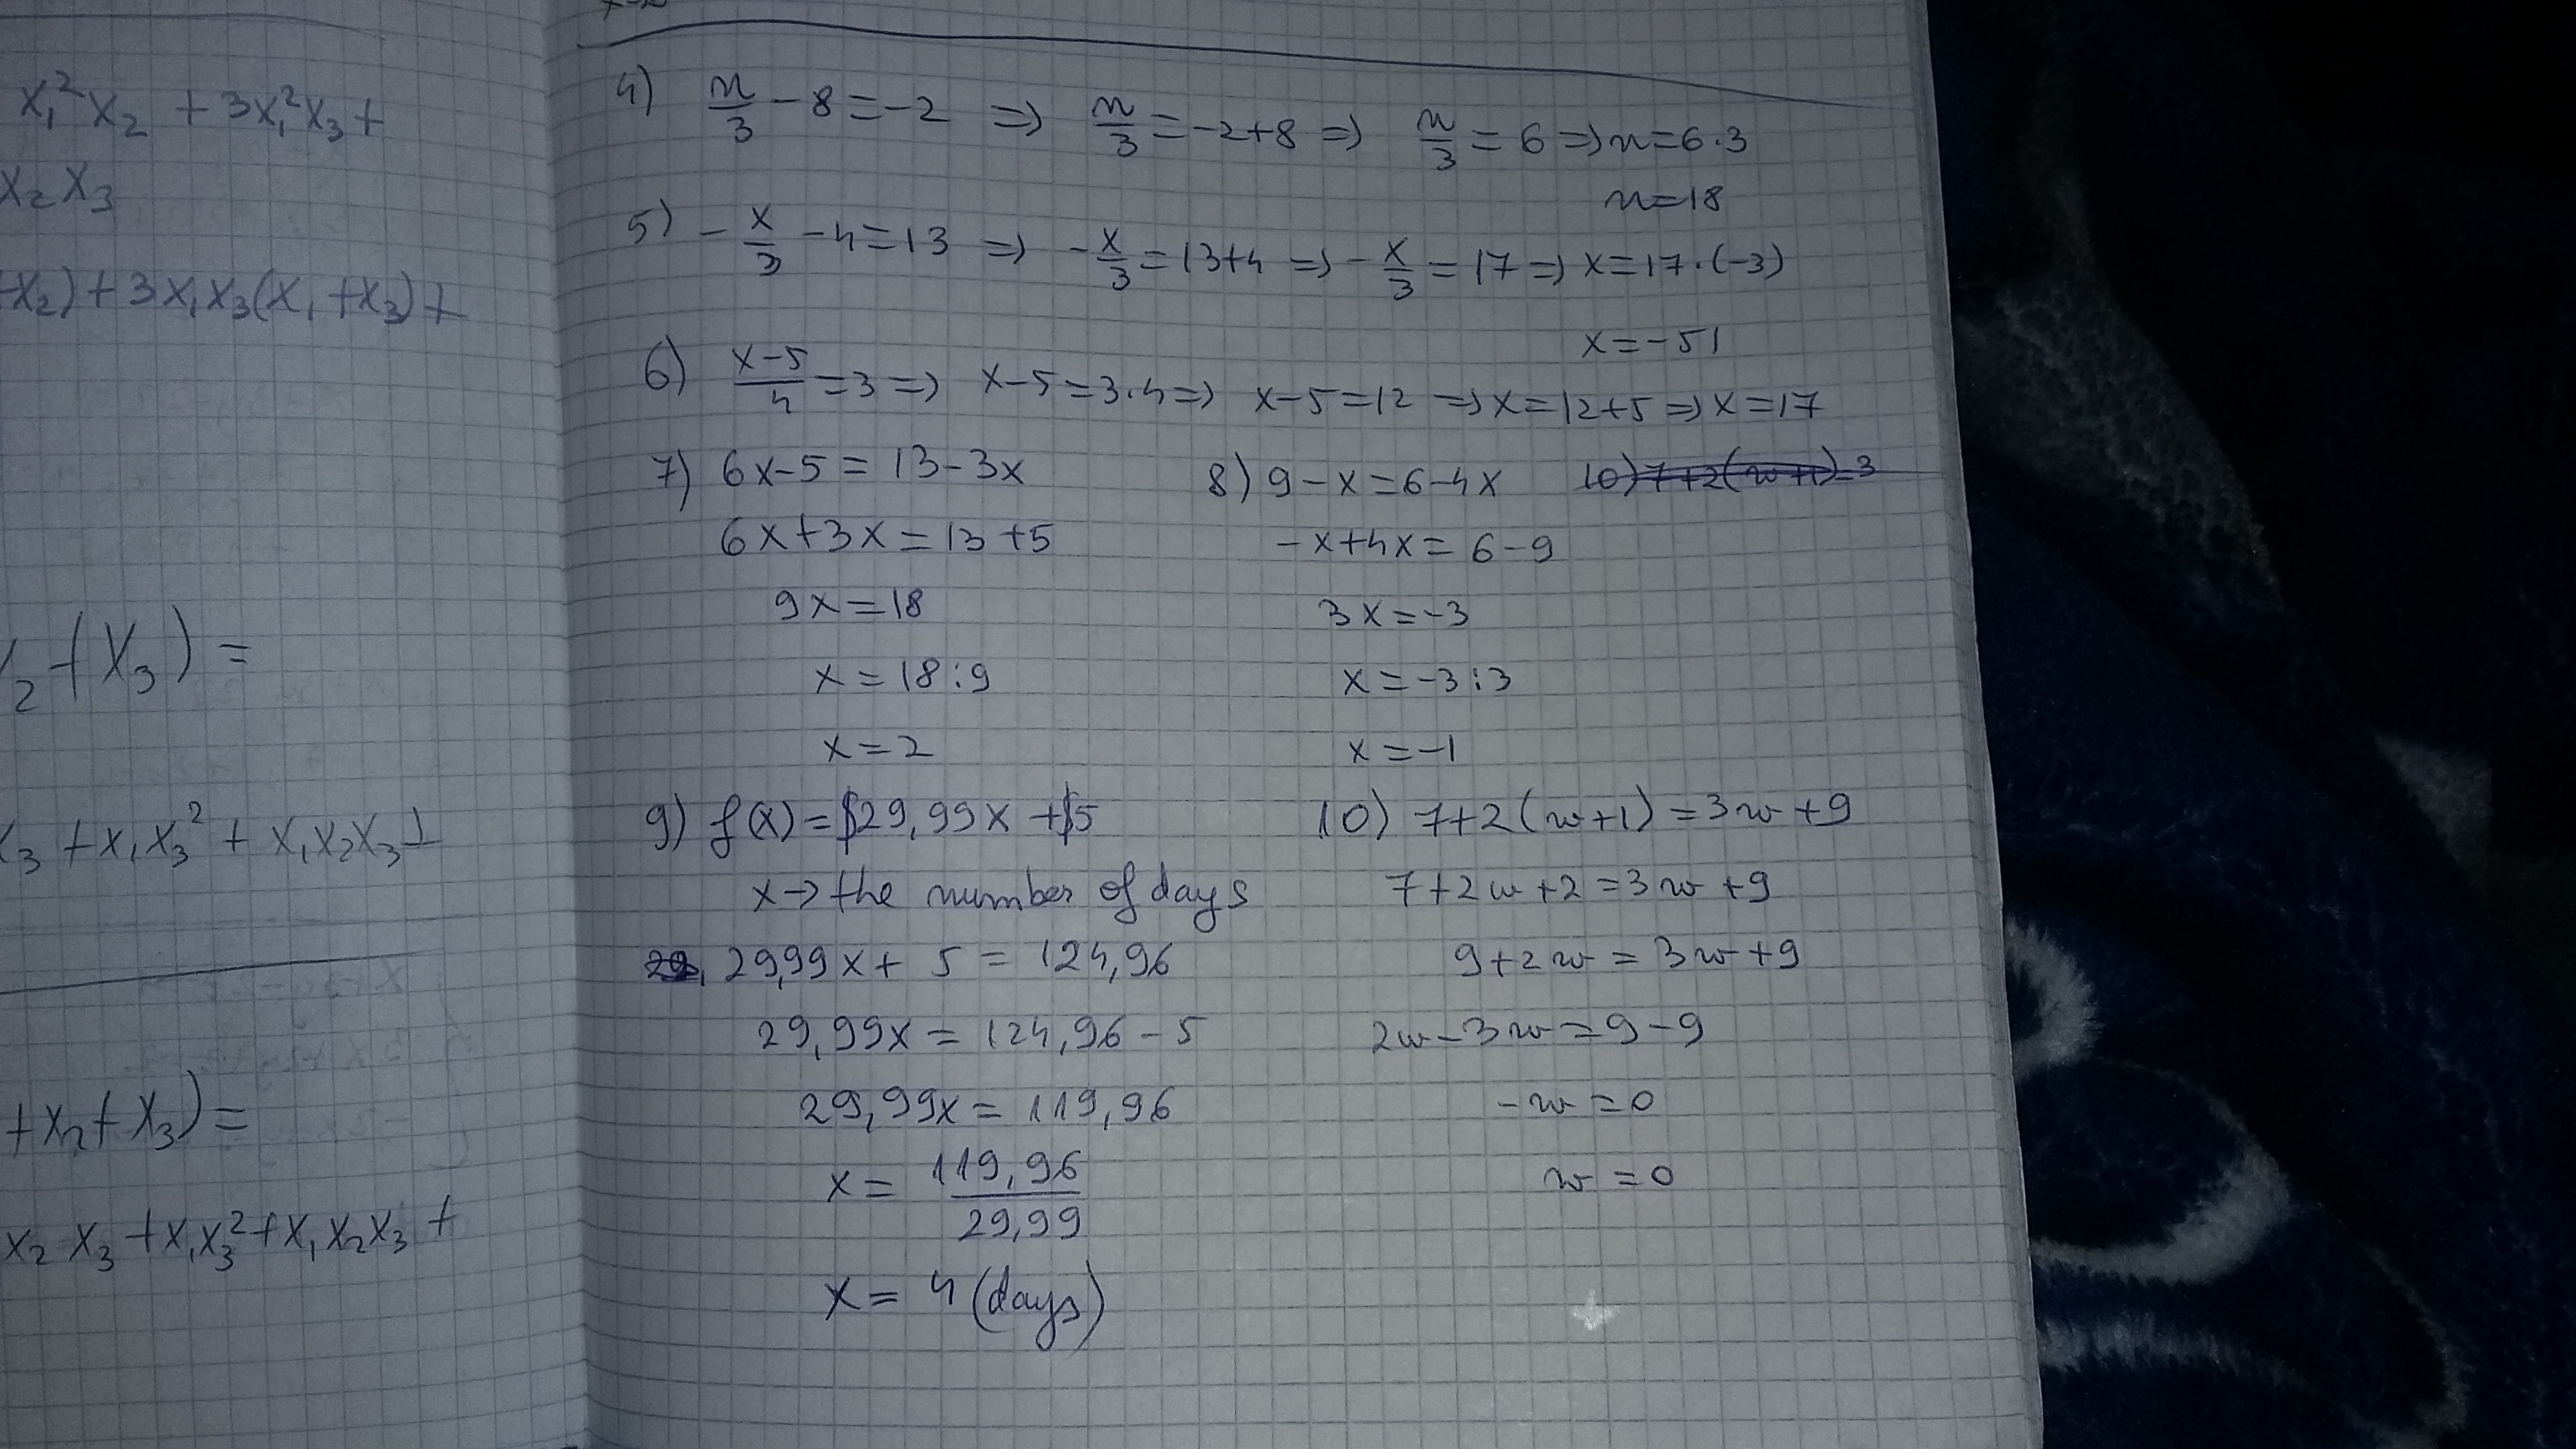 x₁²x₂ + 3x₁²x₃ +
x₂x₃
x₂) + 3x₁x₃(x₁ + x₃) +
₂ + x₃) =
x₃ + x₁x₃² + x₁x₂x₃ +
+ x₂ + x₃) =
x₂x₃ + x₁x₃² + x₁x₂x₃ +
4) n/3 - 8 = -2 => n/3 = -2+8 => n/3 = 6 => n = 6·3
n = 18
5) -x/3 - 4 = 13 => -x/3 = 13+4 => -x/3 = 17 => x = 17·(-3)
x = -51
6) (x-5)/4 = 3 => x-5 = 3·4 => x-5 = 12 => x = 12+5 => x = 17
7) 6x-5 = 13-3x
6x+3x = 13+5
9x = 18
x = 18:9
x = 2
8) 9-x = 6-4x
-x+4x = 6-9
3x = -3
x = -3:3
x = -1
10) 7+2(w+1)=3
9) f(x) = $29,99x + $5
x → the number of days
29,99x + 5 = 124,96
29,99x = 124,96 - 5
29,99x = 119,96
x = 119,96/29,99
x = 4 (days)
10) 7+2(w+1) = 3w+9
7+2w+2 = 3w+9
9+2w = 3w+9
2w-3w = 9-9
-w = 0
w = 0